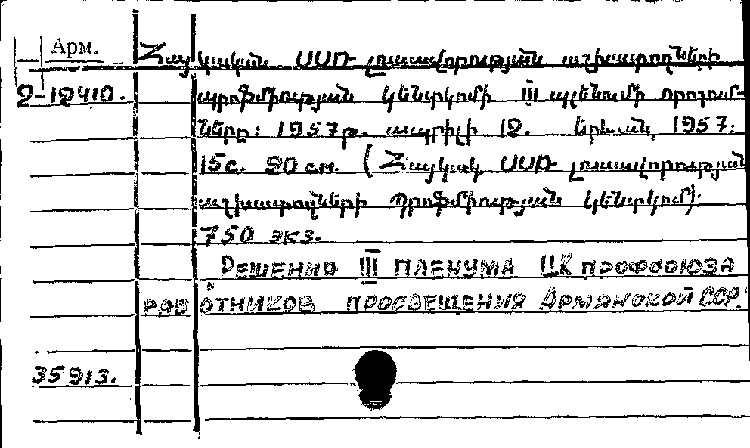 Арм.
Հայկական ՍՍՌ լուսավորության աշխատողների
2-12410. պրոֆմիության կենտկոմի III պլենումի որոշում-
ները: 1957թ. ապրիլի 12. Երևան, 1957.
15с. 20см. (Հայկակ. ՍՍՌ լուսավորության
աշխատողների Պրոֆմիության կենտկոմ).
750 экз.
Решения III пленума ЦК профсоюза
работников просвещения Армянской ССР.
35913.